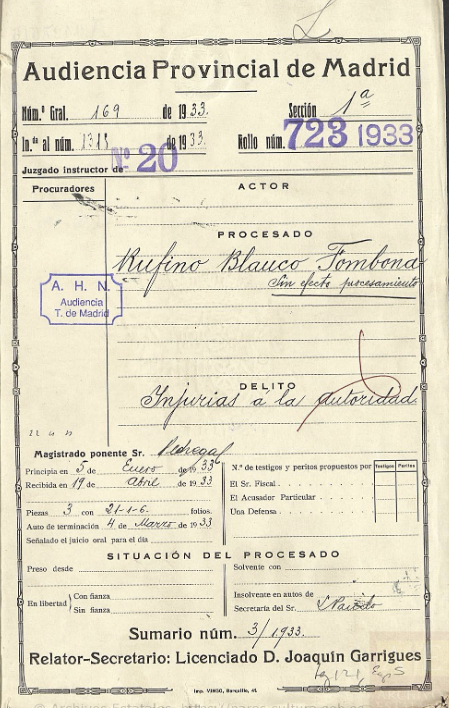 Audiencia Provincial de Madrid
Núm.º Gral. 169 de 1933.
Sección 1ª
In.do al núm. de 1933.
Rollo núm. 723 1933
Juzgado instructor de Nº 20
Procuradores
ACTOR
PROCESADO
Rufino Blanco Fombona
Sin efecto procesamiento
A. H. N.
Audiencia
T. de Madrid
DELITO
Injurias a la autoridad.
Magistrado ponente Sr. Pedregal
Principia en 5 de Enero de 1933
Recibida en 19 de Abril de 1933
Piezas 3 con 21-1-6. folios.
Auto de terminación 4 de Marzo de 1933
Señalado el juicio oral para el día
N.º de testigos y peritos propuestos por Testigos Peritos
El Sr. Fiscal
El Acusador Particular
Una Defensa
SITUACIÓN DEL PROCESADO
Preso desde
En libertad
Con fianza
Sin fianza
Solvente con
Insolvente en autos de
Secretaría del Sr.
Sumario núm. 3/1933.
Relator-Secretario: Licenciado D. Joaquín Garrigues
Imp. VIRGO, Barquillo, 41.